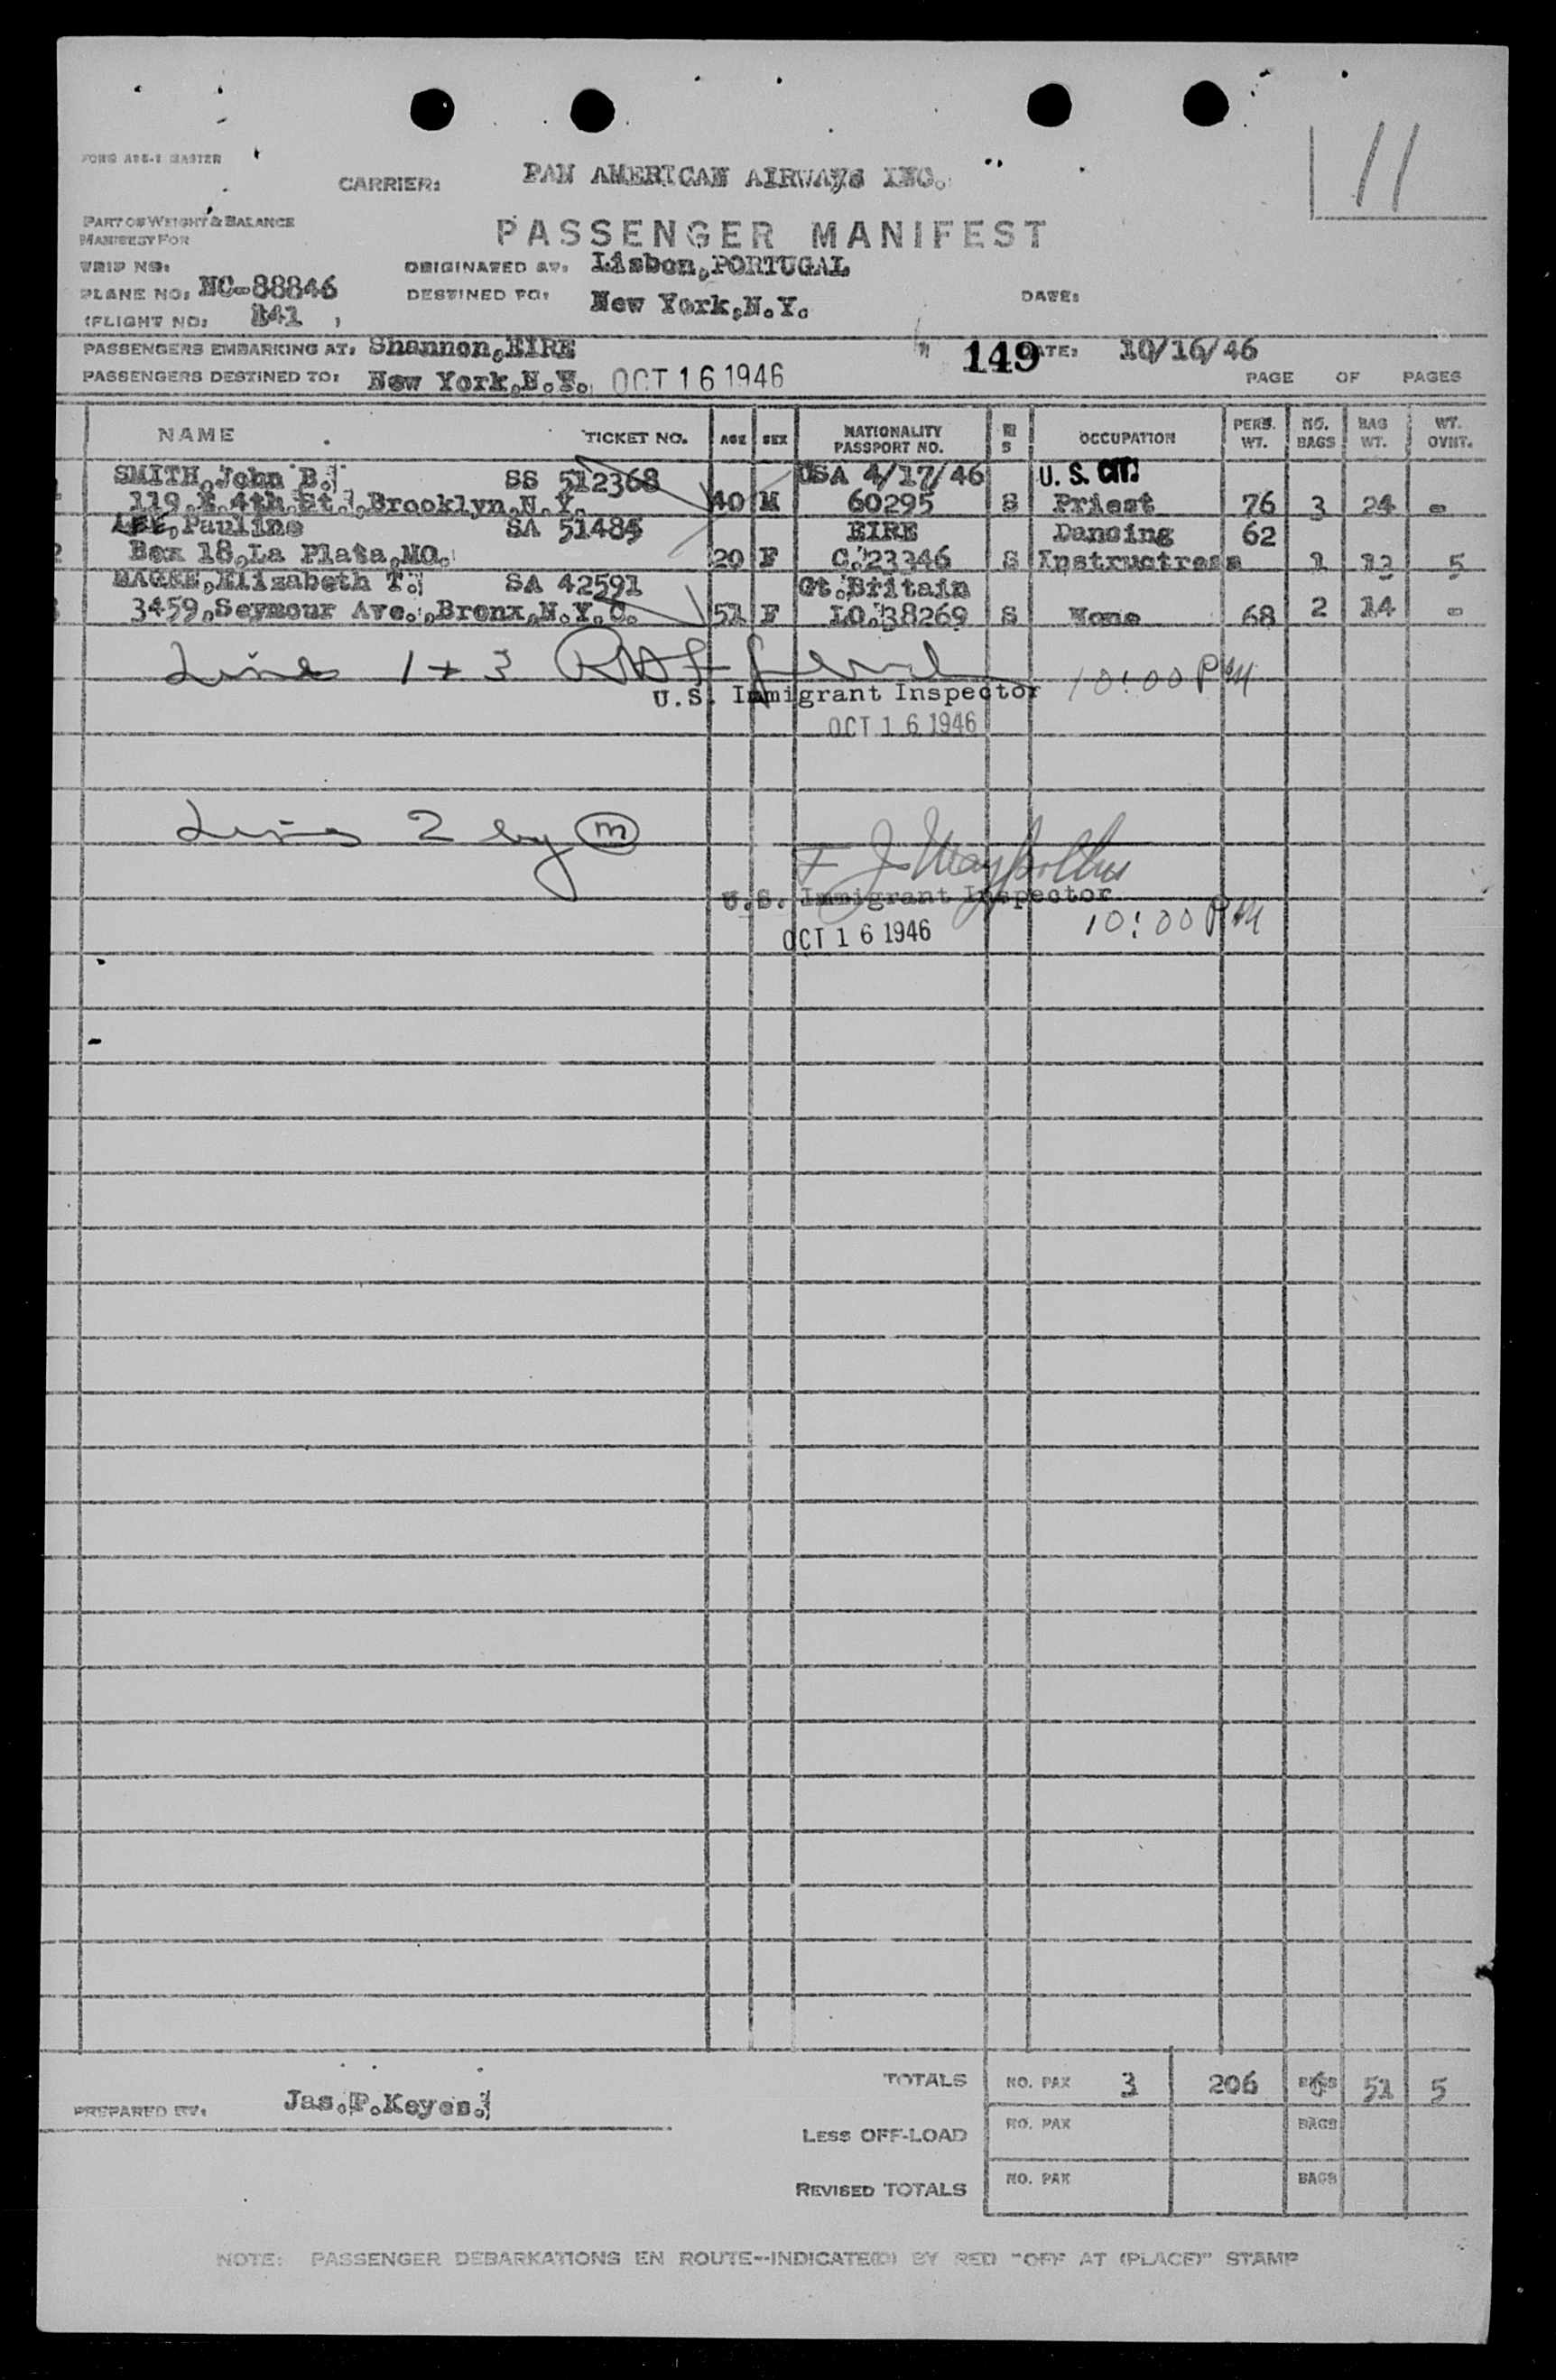 FORM ADS-1 MASTER
11
CARRIER: PAN AMERICAN AIRWAYS INC.
PART OF WEIGHT & BALANCE
MANIFEST FOR
PASSENGER MANIFEST
TRIP NO: ORIGINATED AT: Lisbon,PORTUGAL
PLANE NO: NC-88846 DESTINED TO: New York,N.Y. DATE:
(FLIGHT NO: 141 )
PASSENGERS EMBARKING AT: Shannon,EIRE 149 DATE: 10/16/46
PASSENGERS DESTINED TO: New York,N.Y. OCT 16 1946 PAGE OF PAGES
NAME TICKET NO. AGE SEX NATIONALITY PASSPORT NO. M S OCCUPATION PERS. WT. NO. BAGS BAG WT. WT. OVHT.
SMITH,John B. SS 512368 USA 4/17/46 U. S. CIT.
119,E.4th.St.,Brooklyn,N.Y. 40 M 60295 S Priest 76 3 24 -
LEE,Pauline SA 51485 EIRE Dancing 62
2 Box 18,La Plata,MO. 20 F C.23346 S Instructress 1 13 5
MAGEE,Elizabeth T. SA 42591 Gt.Britain
3 3459,Seymour Ave.,Bronx,N.Y.C. 51 F LO.38269 S None 68 2 14 -
Line 1 + 3
U.S. Immigrant Inspector 10:00 PM
OCT 16 1946
Line 2 by m
U.S. Immigrant Inspector
OCT 16 1946 10:00 PM
TOTALS NO. PAX 3 206 BAGS 6 51 5
PREPARED BY: Jas.P.Keyes.
LESS OFF-LOAD NO. PAX BAGS
REVISED TOTALS NO. PAX BAGS
NOTE: PASSENGER DEBARKATIONS EN ROUTE--INDICATE(D) BY RED "OFF AT (PLACE)" STAMP